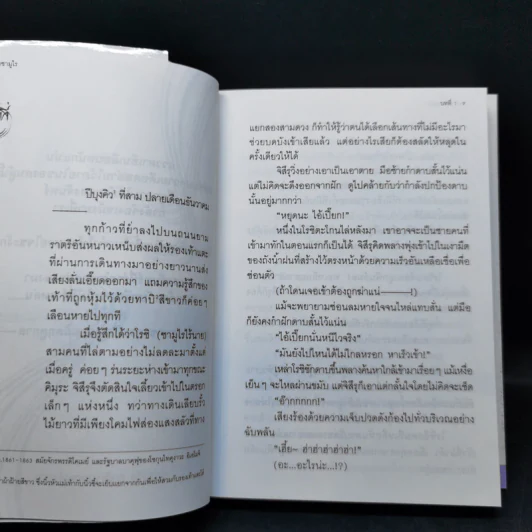 ปีบุงคิว¹ ที่สาม ปลายเดือนธันวาคม
ทุกก้าวที่ย่ำลงไปบนถนนยาม
ราตรีอันหนาวเหน็บส่งผลให้รองเท้าแตะ
ที่ผ่านการเดินทางมาอย่างยาวนานส่ง
เสียงลั่นเอี๊ยดออกมา แถมความรู้สึกของ
เท้าที่ถูกหุ้มไว้ด้วยทาบิ² สีขาวก็ค่อยๆ
เลือนหายไปทุกที
เมื่อรู้สึกได้ว่าโรชิ (ซามูไรไร้นาย)
สามคนที่ไล่ตามอย่างไม่ลดละมาตั้งแต่
เมื่อครู่ ค่อยๆ ร่นระยะห่างเข้ามาทุกขณะ
คิมุระ จิสึรุจึงตัดสินใจเลี้ยวเข้าไปในตรอก
เล็กๆ แห่งหนึ่ง ทว่าทางเดินเลียบรั้ว
ไม้ยาวที่มีเพียงโคมไฟส่องแสงสลัวที่ทาง
1861-1863 สมัยจักรพรรดิโคเมย์ และรัฐบาลบาคุฟุของโชกุนโทคุงาวะ
บทที่ 1 - 9
แยกสองสามดวง ก็ทำให้รู้ว่าตนได้เลือกเส้นทางที่ไม่มีอะไรมา
ช่วยบดบังเข้าเสียแล้ว แต่อย่างไรเสียก็ต้องสลัดให้หลุดใน
ครั้งเดียวให้ได้
จิสึรุวิ่งอย่างเอาเป็นเอาตาย มือซ้ายกำดาบสั้นไว้แน่น
แต่ไม่คิดจะดึงออกจากฝัก ดูไปคล้ายกับว่ากำลังปกป้องดาบ
นั้นอยู่มากกว่า
“หยุดนะ ไอ้เปี๊ยก!”
หนึ่งในโรชิตะโกนไล่หลังมา เขาอาจจะเป็นชายคนที่
เข้ามาทักในตอนแรกก็เป็นได้ จิสึรุคิดพลางพุ่งเข้าไปในเงามืด
ของถังน้ำฝนที่สร้างไว้ตรงหน้าด้วยความเร็วอันเหลือเชื่อเพื่อ
ซ่อนตัว
(ถ้าโดนเจอเข้าต้องถูกฆ่าแน่———!)
แม้จะพยายามซ่อนลมหายใจจนไหล่แทบสั่น แต่มือ
ก็ยังคงกำฝักดาบสั้นไว้แน่น
“ไอ้เปี๊ยกนั่นหนีไวจริง”
“มันยังไปไหนได้ไม่ไกลหรอก หาเร็วเข้า!”
เหล่าโรชิชักดาบขึ้นพลางค้นหาใกล้เข้ามาเรื่อยๆ แม้เหงื่อ
เย็นๆ จะไหลผ่านขมับ แต่จิสึรุก็เอาแต่กลั้นใจโดยไม่คิดจะเช็ด
“อ๊ากกกกก!”
เสียงร้องด้วยความเจ็บปวดดังก้องไปทั่วบริเวณอย่าง
ฉับพลัน
“เฮี้ย- ฮ่าฮ่าฮ่าฮ่าฮ่า!”
(อะ...อะไรน่ะ...!?)